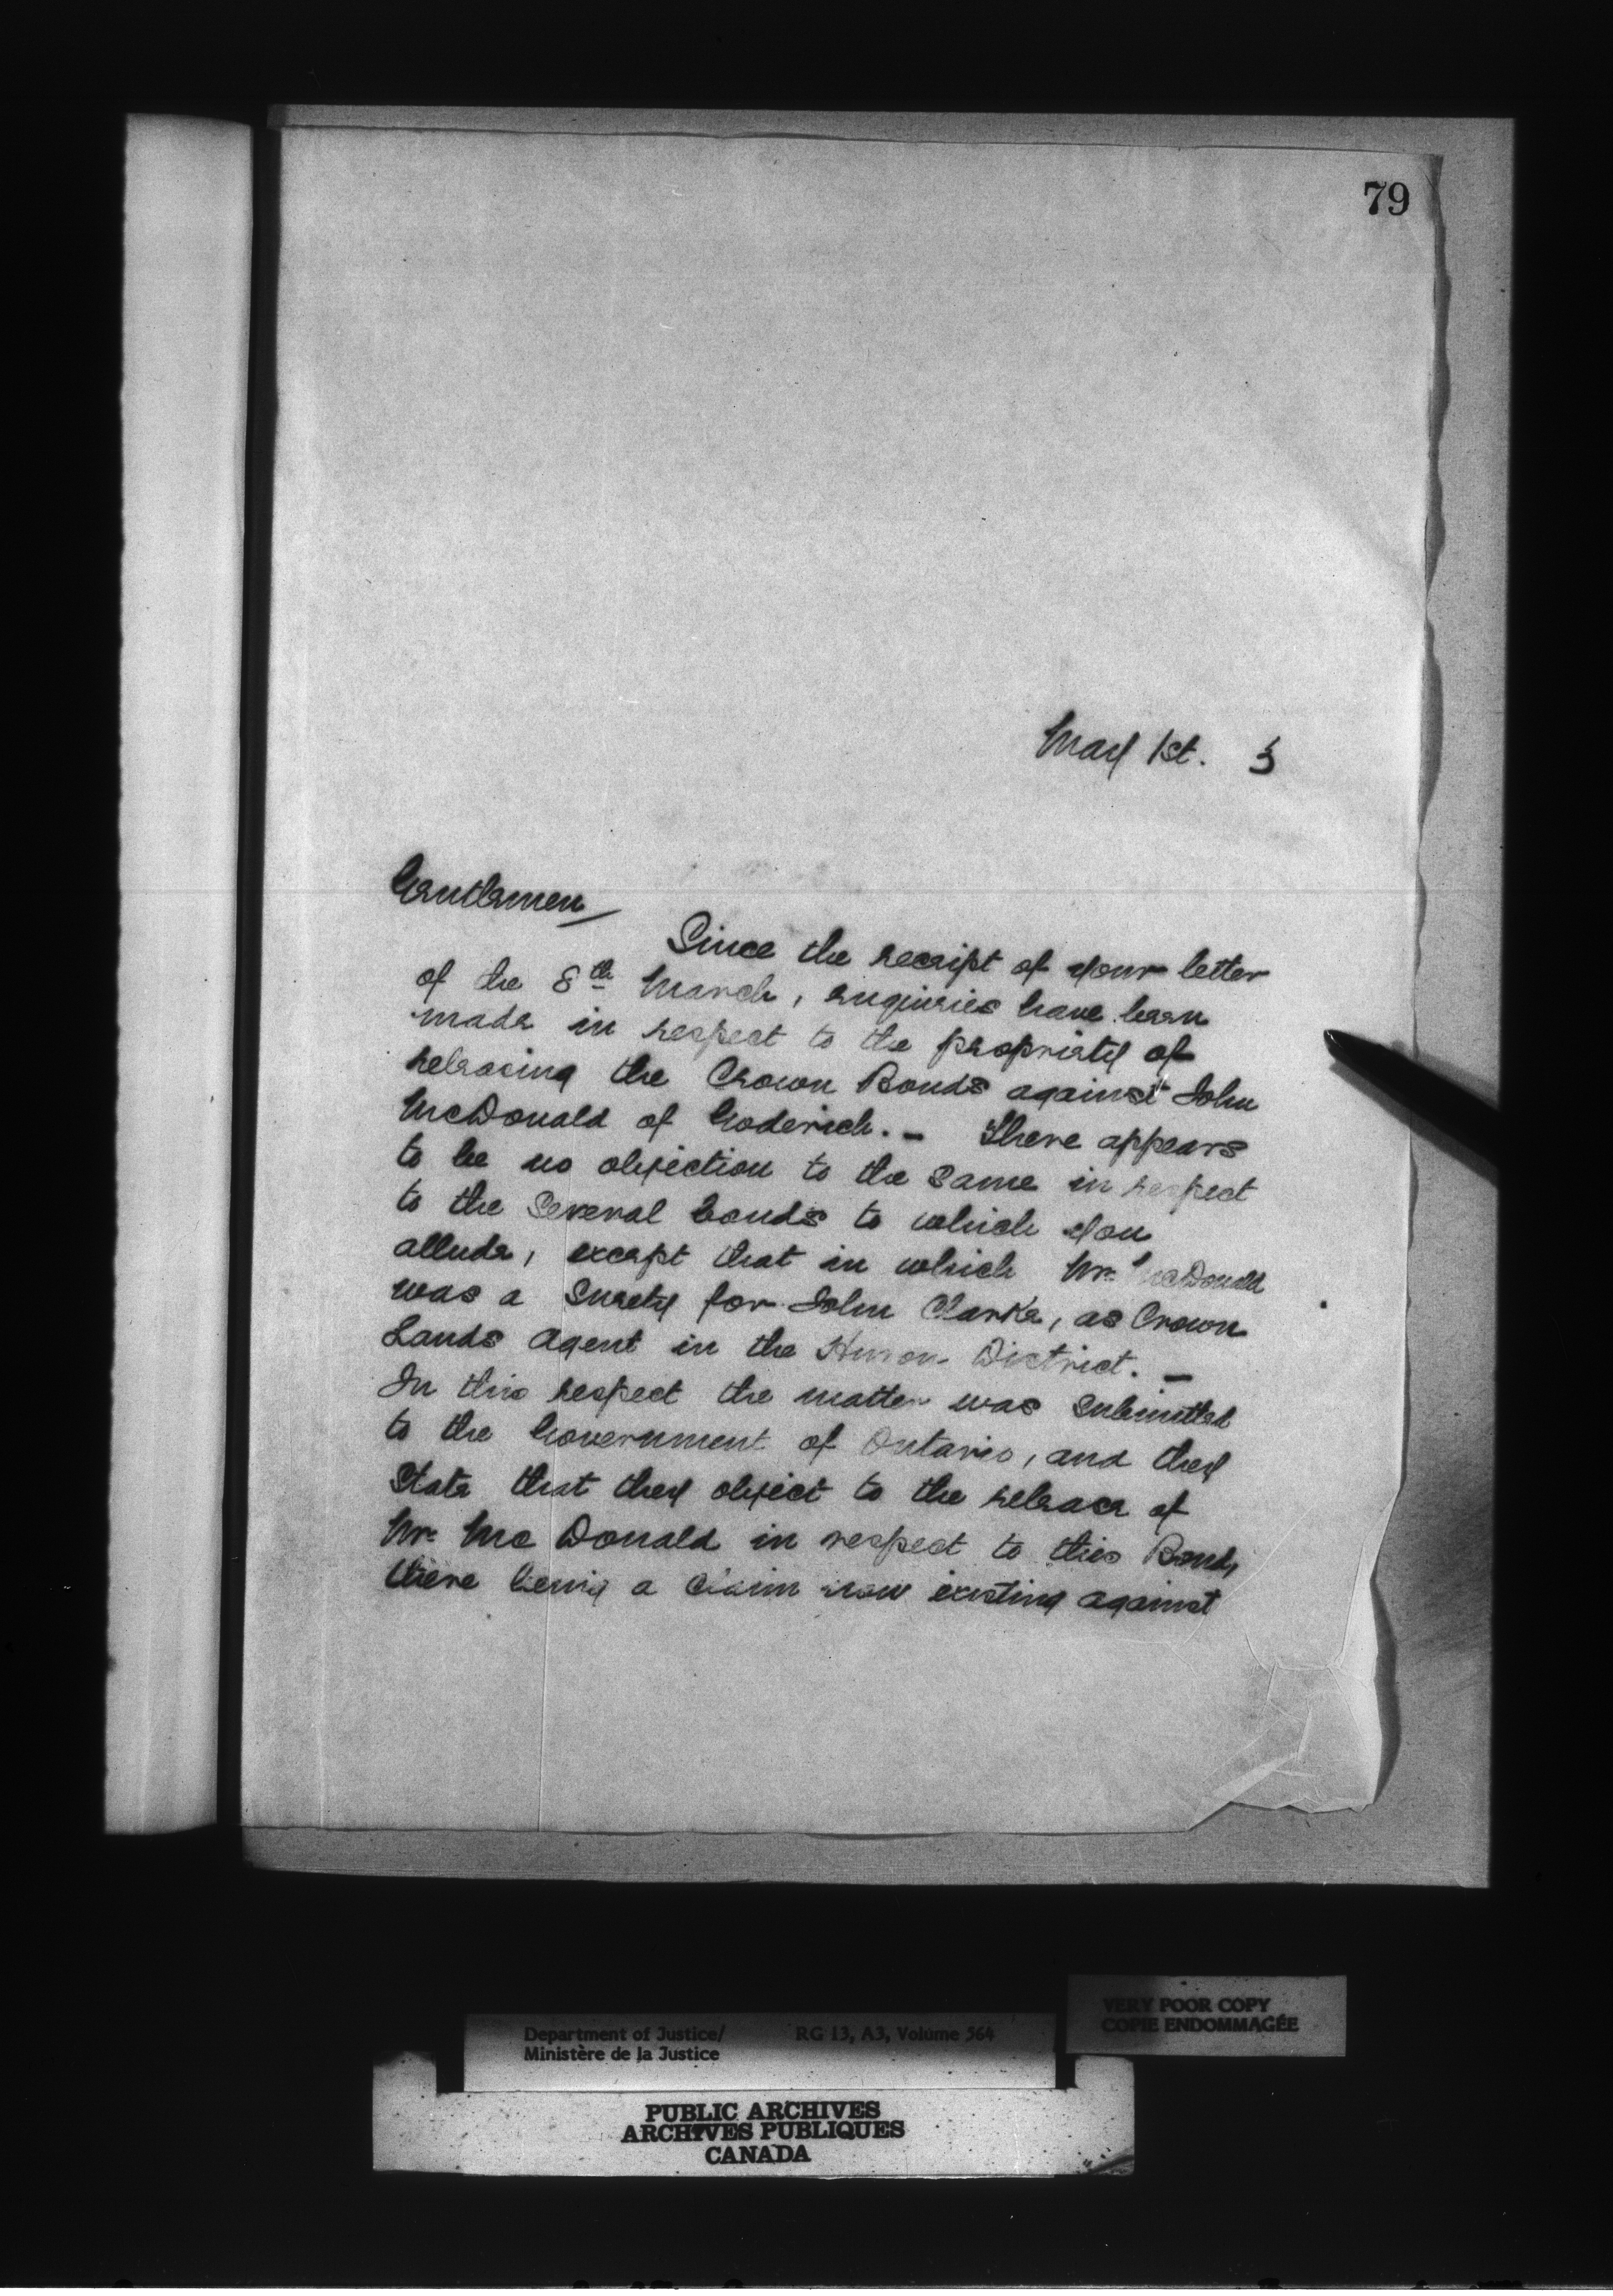 79
May 1st. 3
Gentlemen
Since the receipt of your letter
of the 8th March, enquiries have been
made in respect to the propriety of
releasing the Crown Bonds against John
McDonald of Goderich. - There appears
to be no objection to the same in respect
to the several bonds to which you
allude, except that in which Mr. McDonald
was a surety for John Clarke, as Crown
Lands Agent in the Huron District. -
In this respect the matter was submitted
to the Government of Ontario, and they
State that they object to the release of
Mr. McDonald in respect to this Bond,
there being a claim now existing against
VERY POOR COPY
COPIE ENDOMMAGÉE
Department of Justice/ RG 13, A3, Volume 564
Ministère de la Justice
PUBLIC ARCHIVES
ARCHIVES PUBLIQUES
CANADA